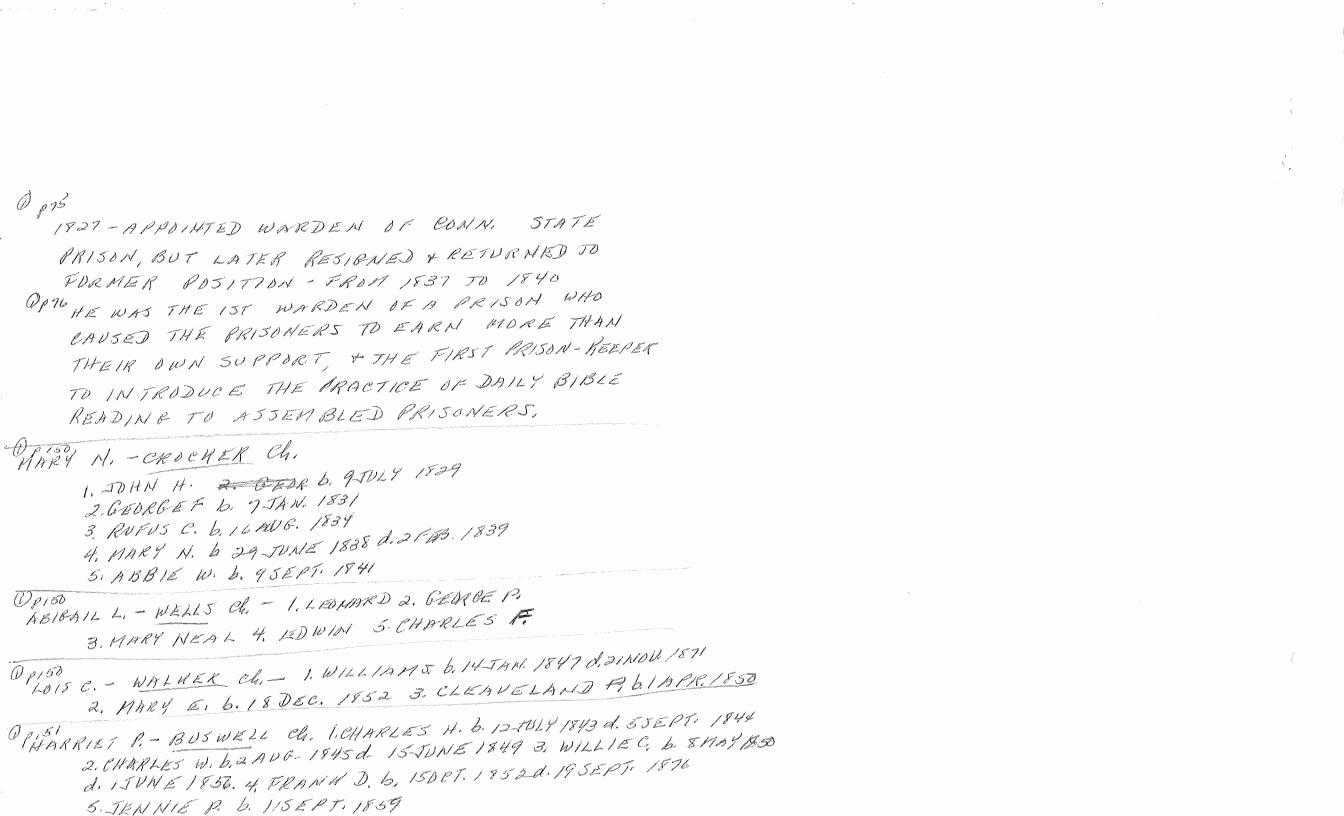 ① p75
1827 - APPOINTED WARDEN OF CONN. STATE
PRISON, BUT LATER RESIGNED & RETURNED TO
FORMER POSITION - FROM 1837 TO 1840
① p76 HE WAS THE 1ST WARDEN OF A PRISON WHO
CAUSED THE PRISONERS TO EARN MORE THAN
THEIR OWN SUPPORT, & THE FIRST PRISON-KEEPER
TO INTRODUCE THE PRACTICE OF DAILY BIBLE
READING TO ASSEMBLED PRISONERS.
① p150
MARY N. - CROCKER Ch.
1. JOHN H. b. 9 JULY 1829
2. GEORGE F b. 7 JAN. 1831
3. RUFUS C. b. 16 AUG. 1834
4. MARY N. b 29 JUNE 1838 d. 2 FEB. 1839
5. ABBIE W. b. 9 SEPT. 1841
① p150
ABIGAIL L. - WELLS Ch. - 1. LEONARD 2. GEORGE P.
3. MARY NEAL 4. EDWIN 5. CHARLES F.
① p150
LOIS C. - WALKER Ch. - 1. WILLIAM S b. 14 JAN. 1847 d. 21 NOV. 1871
2. MARY E. b. 18 DEC. 1852 3. CLEAVELAND P. b. 1 APR. 1850
① p151
HARRIET P. - BUSWELL Ch. 1. CHARLES H. b. 12 JULY 1843 d. 5 SEPT. 1844
2. CHARLES W. b. 2 AUG. 1845 d. 15 JUNE 1849 3. WILLIE C. b. 8 MAY 1850
d. 1 JUNE 1856. 4. FRANK D. b. 15 OCT. 1852 d. 19 SEPT. 1876
5. JENNIE P. b. 11 SEPT. 1859